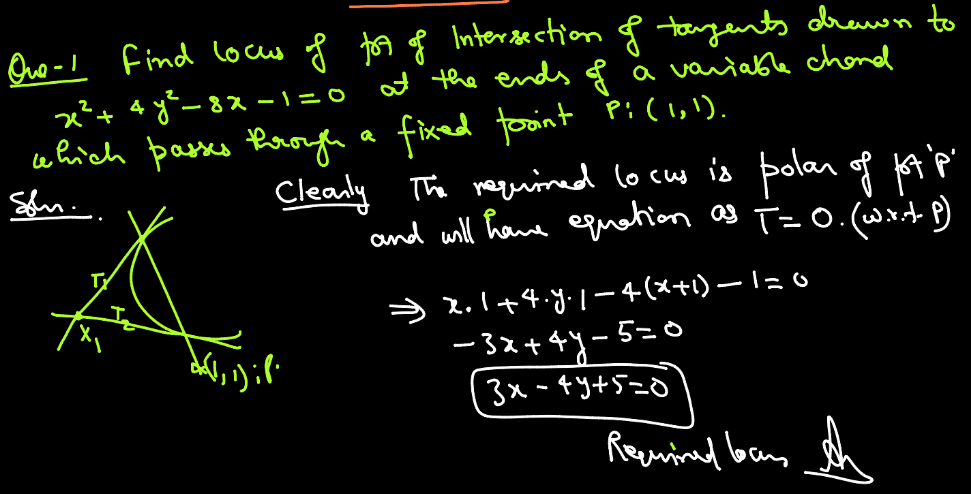 Que-1 Find locus of pt of Intersection of tangents drawn to
x² + 4y² - 8x - 1 = 0 at the ends of a variable chord
which passes through a fixed point P: (1, 1).
Soln.
Clearly The required locus is polar of pt 'P'
and will have equation as T = 0. (w.r.t. P)
⇒ x.1 + 4.y.1 - 4(x+1) - 1 = 0
-3x + 4y - 5 = 0
3x - 4y + 5 = 0
Required locus
T₁
T₂
X₁
(1, 1) ; P.